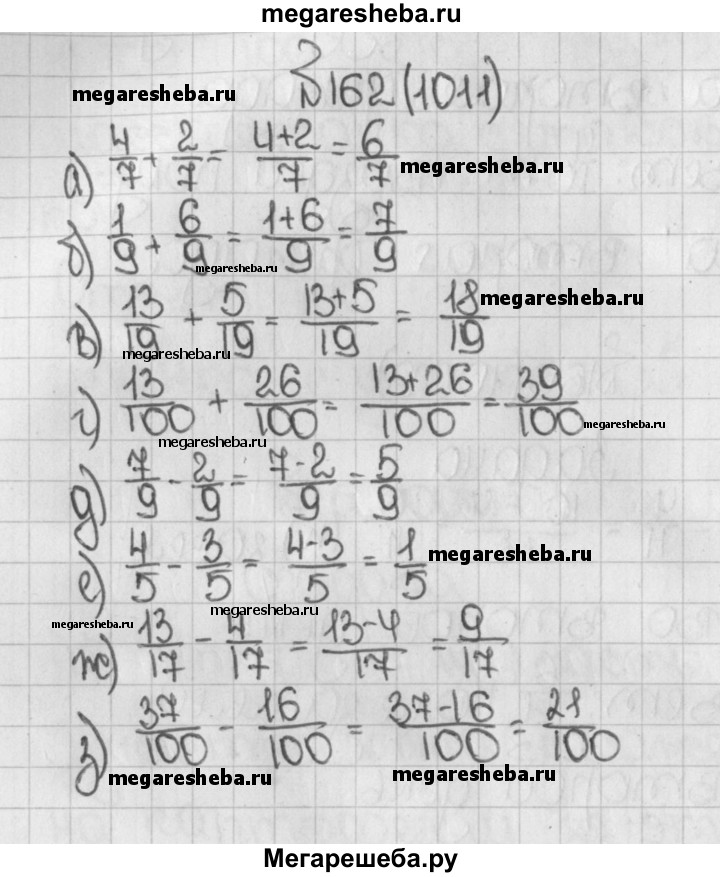 megaresheba.ru
№162(1011)
megaresheba.ru
а) 4/7 + 2/7 = (4+2)/7 = 6/7
megaresheba.ru
б) 1/9 + 6/9 = (1+6)/9 = 7/9
megaresheba.ru
в) 13/19 + 5/19 = (13+5)/19 = 18/19
megaresheba.ru
megaresheba.ru
г) 13/100 + 26/100 = (13+26)/100 = 39/100
megaresheba.ru
megaresheba.ru
д) 7/9 - 2/9 = (7-2)/9 = 5/9
е) 4/5 - 3/5 = (4-3)/5 = 1/5
megaresheba.ru
megaresheba.ru
megaresheba.ru
ж) 13/17 - 4/17 = (13-4)/17 = 9/17
з) 37/100 - 16/100 = (37-16)/100 = 21/100
megaresheba.ru
megaresheba.ru
Мегарешеба.ру